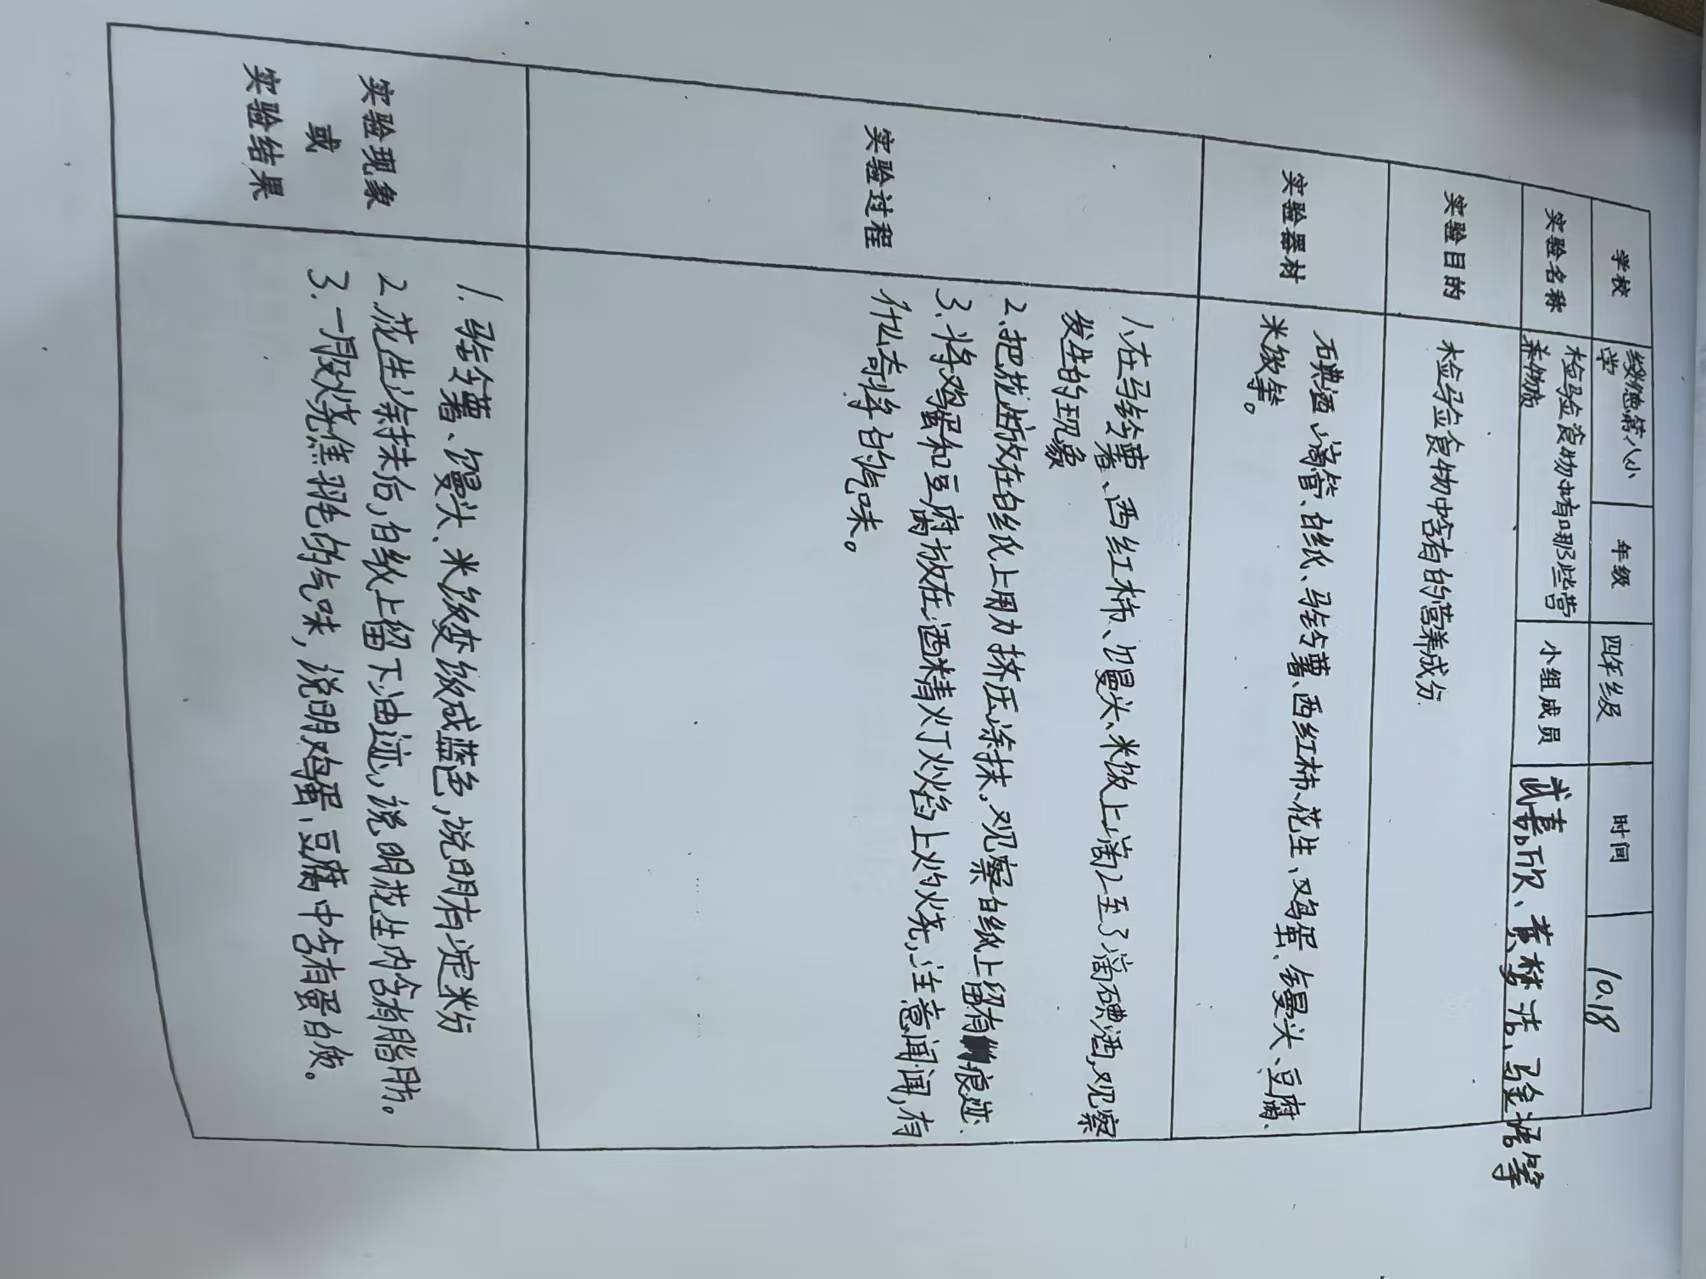 学校 绥德第八小学 年级 四年级 时间 10.18
实验名称 检验食物中有哪些营
养物质
小组成员 武嘉昕、黄梦洁、马金浩等
实验目的 检验食物中含有的营养成份
实验器材 石典酒、滴管、白纸、马铃薯、西红柿、花生、鸡蛋、馒头、豆腐、
米饭等。
实验过程
1、在马铃薯、西红柿、馒头、米饭上滴2至3滴碘酒,观察
发生的现象
2、把花生放在白纸上用力挤压涂抹。观察白纸上留有痕迹
3、将鸡蛋和豆腐放在酒精灯火焰上灼烧,注意闻闻,有
什么奇特的气味。
实验现象
或
实验结果
1.马铃薯、馒头、米饭变成蓝色,说明有淀粉
2.花生涂抹后,白纸上留下油迹,说明花生内含有脂肪。
3.一股烧焦羽毛的气味,说明鸡蛋、豆腐中含有蛋白质。